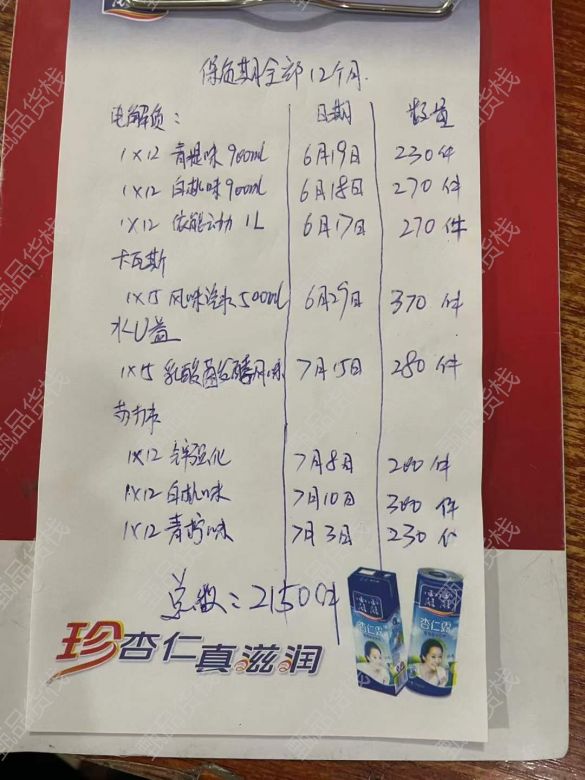 保质期全部12个月.
电解质: 日期 数量
1×12 青提味900ml 6月19日 230件
1×12 白桃味900ml 6月18日 270件
1×12 依能云动 1L 6月17日 270件
卡瓦斯
1×15 风味汽水500ml 6月29日 370件
水U益
1×15 乳酸菌发酵风味 7月15日 280件
苏打水
1×12 锌强化 7月8日 200件
1×12 白桃味 7月10日 300件
1×12 青柠味 7月3日 230件
总数:2150件
珍杏仁真滋润
杏仁露
杏仁露
甄品货栈